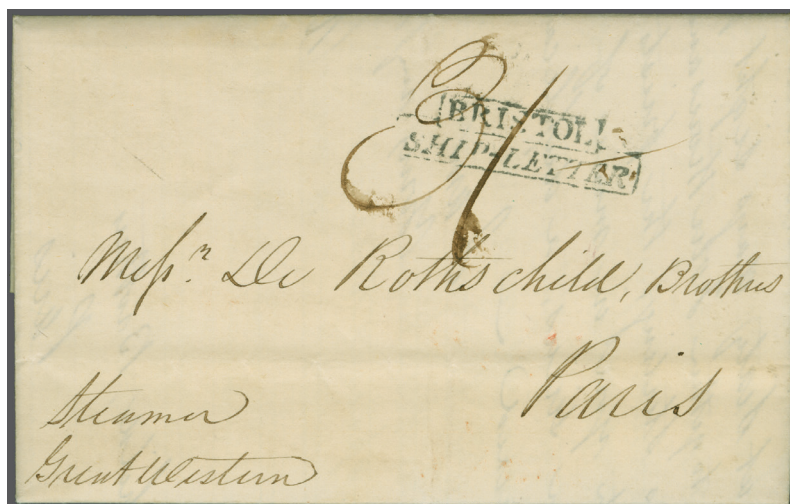 3/
BRISTOL
SHIP-LETTER
Messrs. De Rothschild, Brothers
Paris
Steamer
Great Western